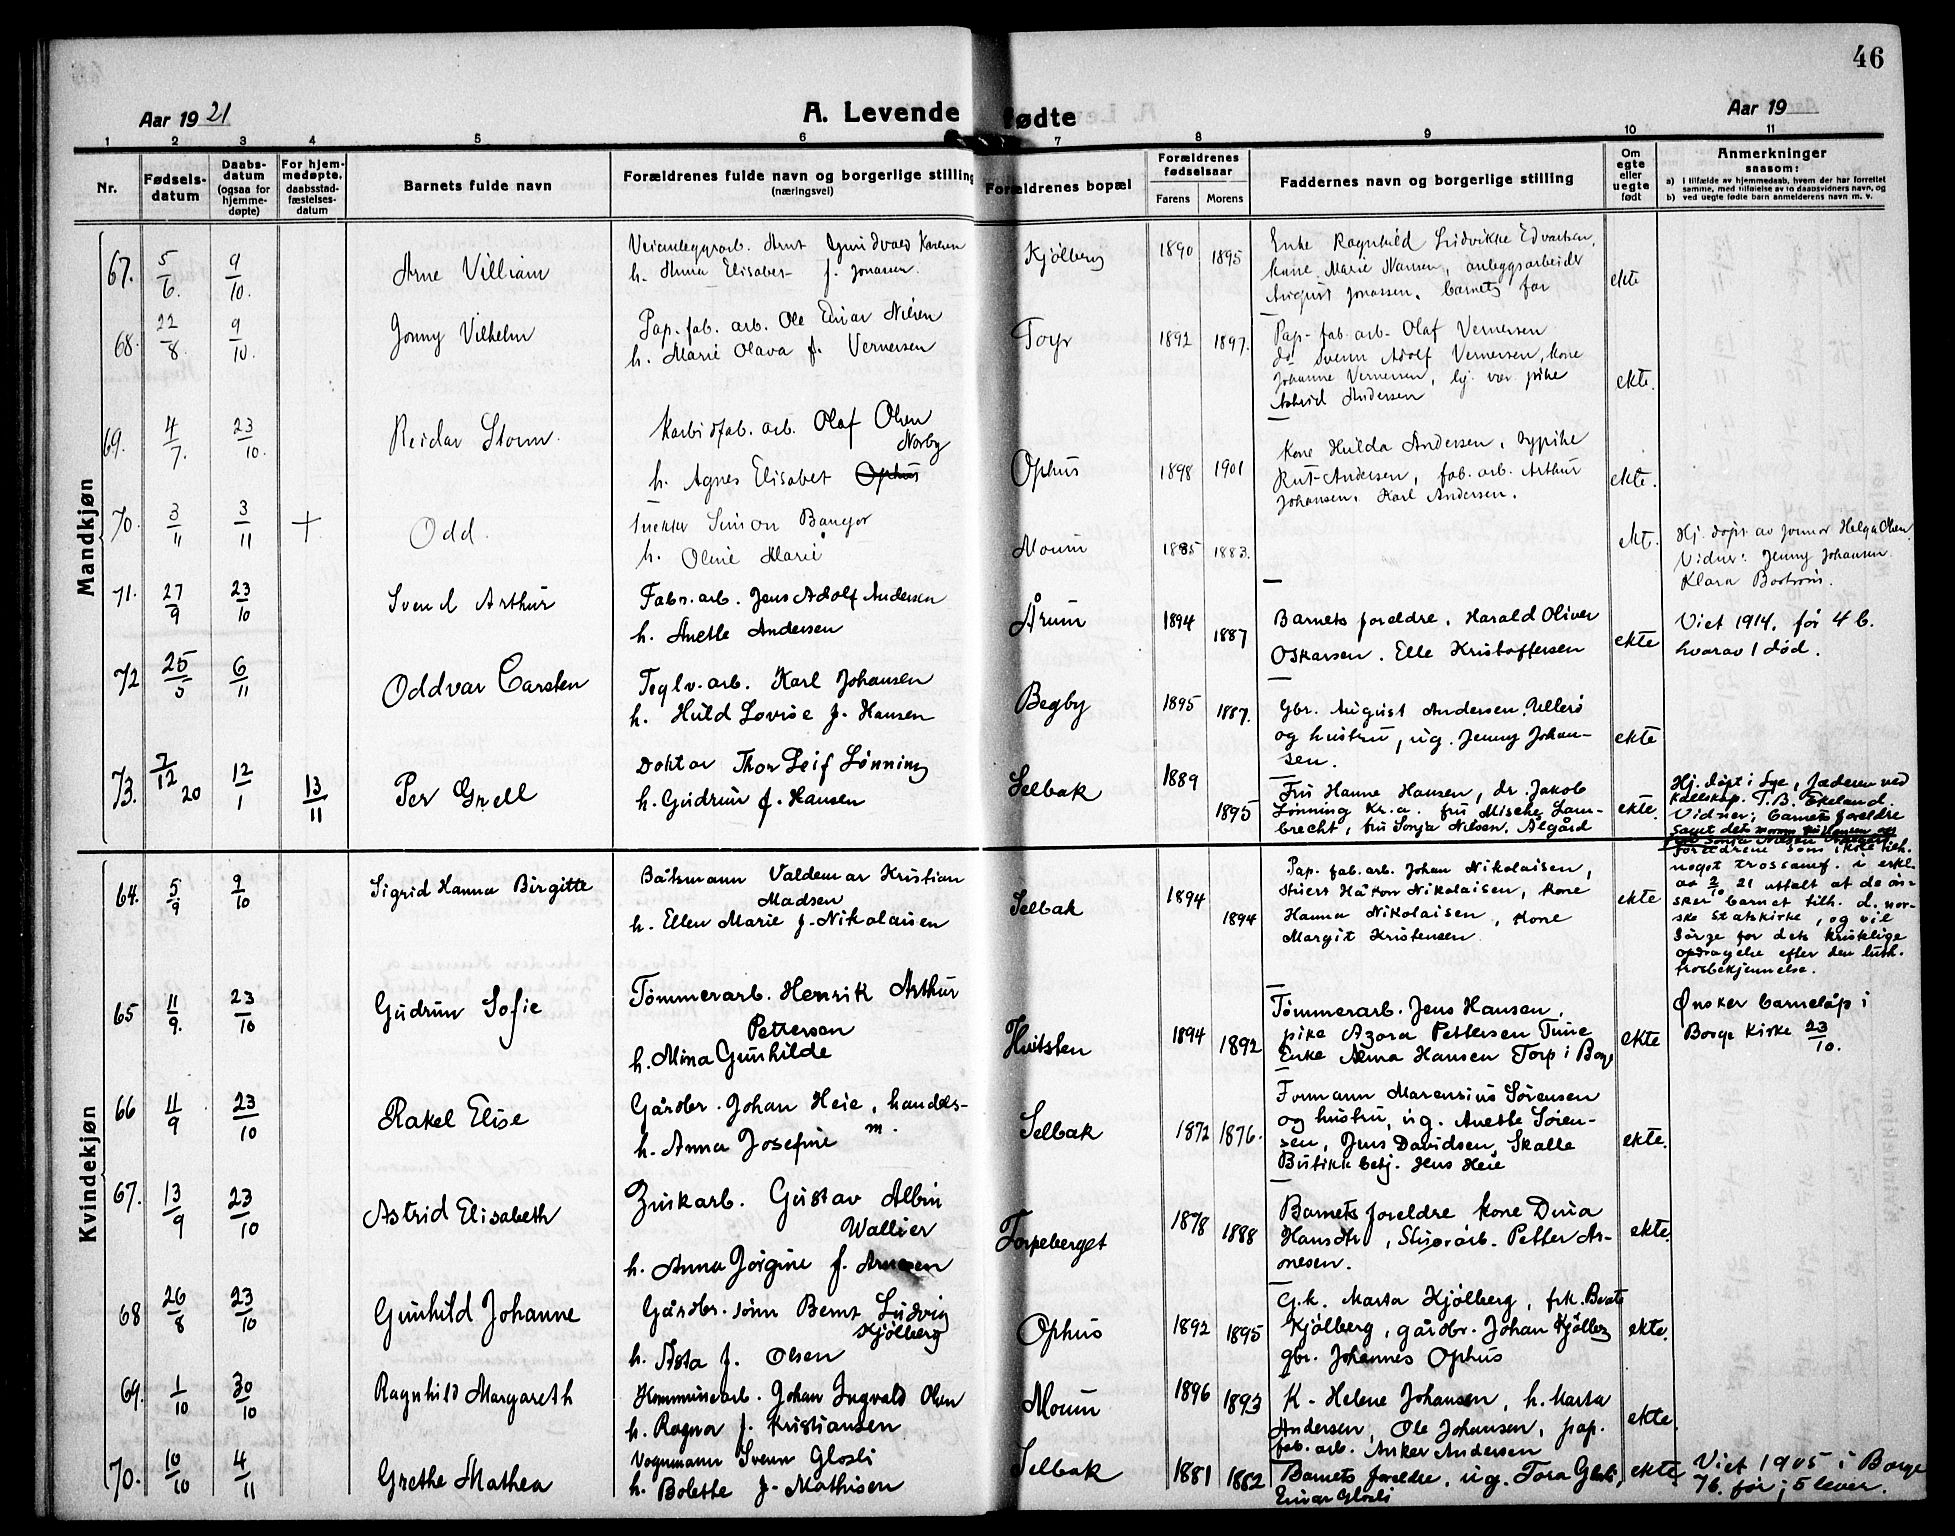 46
Aar 1921
A. Levende fødte
Aar 19
1 2 3 4 5 6 7 8 9 10 11
Nr.
Fødsels-
datum
Daabs-
datum
(ogsaa for
hjemme-
døpte)
For hjem-
medøpte,
daabsstad-
fæstelses-
datum
Barnets fulde navn
Forældrenes fulde navn og borgerlige stilling
(næringsvei)
Forældrenes bopæl
Forældrenes
fødselsaar
Farens Morens
Faddernes navn og borgerlige stilling
Om
egte
eller
uegte
født
Anmerkninger
snasom:
a) i tilfælde av hjemmedaab, hvem der har forrettet
samme, med tilføielse av to daabsvidners navn, og
b) ved uegte fødte barn anmelderens navn m. v.
Mandkjøn
67. 5/6. 9/10. Arne Villiam
Veianleggsarb. Arnt
h. Anna Elisabet f. Jonassen
Kjølberg 1890 1895
Enke Ragnhild Ludvikke Edvartsen,
kone Marie Nansen, anleggsarbeider
August Jonassen, barnets far
ekte
68. 22/8. 9/10. Jonny Vilhelm
Pap. fab. arb. Ole Einar Nilsen
h. Marie Olava f. Vernersen
Torp 1892 1897.
Pap. fab. arb. Olaf Vernersen
do Svenn Adolf Vernersen, kone
Johanne Vernersen, hj. vær. pike
Astrid Andersen
ekte.
69. 4/7. 23/10. Reidar Storm
Karbidfab. arb. Olaf Olsen
Norby
h. Agnes Elisabet Ophus
Ophus 1898 1901
Kone Hulda Andersen, sypike
Rut Andersen, fab. arb. Arthur
Johansen, Karl Andersen.
ekte.
70. 3/11 3/11 + Odd.
Snekker Simon Bangor
h. Oline Marie
Moum 1885 1883.
ekt.
Hj. døpt av jormor Helga Olsen
Vidner: Jenny Johansen
Klara Bostrøm.
71. 27/9 23/10 Svend Arthur
Fabr. arb. Jens Adolf Andersen
h. Anette Andersen
Årum 1894 1887
Barnets foreldre, Harald Oliver
Oskarsen. Elle Kristoffersen
ekte
Viet 1914, før 4 b.
hvorav 1 død.
72 25/5 6/11 Oddvar Carsten
Teglv. arb. Karl Johansen
h. Huld Lovise f. Hansen
Begby 1895 1887.
Gbr. August Andersen, Ullerø
og hustru, ug. Jenny Johan-
sen.
ekte
73. 7/12 20 12/1 13/11 Per Grell
Doktor Thor Leif Lønning
h. Gudrun f. Hansen
Selbak 1889 1895
Fru Hanne Hansen, dr. Jakob
Lønning Kr.a. fru Mischa Lam-
brecht, fru Sonja Nilsen, Ålgård
ekte.
Hj. døpt i Lye, Jæderen ved
Kallskap. T.B. Ekeland.
Vidner: barnets foreldre
samt dets mormor
Kvindekjøn
64. 5/9 9/10 Sigrid Hanna Birgitte
Båtsmann Valdemar Kristian
Madsen
h. Ellen Marie f. Nikolaisen
Selbak 1894 1894
Pap. fab. arb. Johan Nikolaisen,
Stuert Håkon Nikolaisen, kone
Hanna Nikolaisen, kone
Margit Kristensen
ekte
Foreldrene som ikke tilh.
noget trossamf. i erkl.
av 2/10 21 uttalt at de øn-
sker barnet tilh. d. nor-
ske Statskirke, og vil
sørge for dets kristelige
opdragelse efter den luth.
trosbekjennelse.
65 11/9. 23/10 Gudrun Sofie
Tømmerarb. Henrik Arthur
Pettersen
h. Mina Gunhilde
Hvitsten 1894 1892
Tømmerarb. Jens Hansen,
pike Azora Pettersen Tune
Enke Anna Hansen Torp i Borge
ekte
Ønsker barnedåp i
Borge Kirke 23/10.
66 11/9 23/10 Rakel Elise
Gårdbr. Johan Heie, handels-
m.
h. Anna Josefine
Selbak 1872 1876.
Formann Marensius Sørensen
og hustru, ug. Anette Søren-
sen, Jens Davidsen, Skalle
Butikkbetj. Hans Heie
ekte.
67. 13/9 23/10 Astrid Elisabeth
Zinkarb. Gustav Albin
Wallier
h. Anna Jørgine f. Arnesen
Torpeberget 1878 1888
Barnets foreldre kone Dina
Hansdtr, Stuerarb. Petter Ar-
nesen.
ekte.
68 26/8 23/10 Gunhild Johanne
Gårdbr. sønn Bernt Ludvig
Kjølberg
h. Asta f. Olsen
Ophus 1892 1895
G.k. Marta Kjølberg, frk. Beate
Kjølberg, gårdbr. Johan Kjølberg
gbr. Johannes Ophus
ekte.
69. 1/10 30/10 Ragnhild Margareth
Kommunearb. Johan Ingvald Olsen
h. Ragna f. Kristiansen
Moum 1896 1893
K. Helene Johansen, h. Marta
Andersen, Ole Johansen, pap.
fab. arb. Anker Andersen
ekte.
70. 10/10 4/11 Grethe Mathea
Vognmann Svenn Glosli
h. Bolette f. Mathisen
Selbak 1881 1882
Barnets foreldre, ug. Tora Glosli,
Einar Glosli
ekte
Viet 1905 i Borge
7b. før; 5 lever.